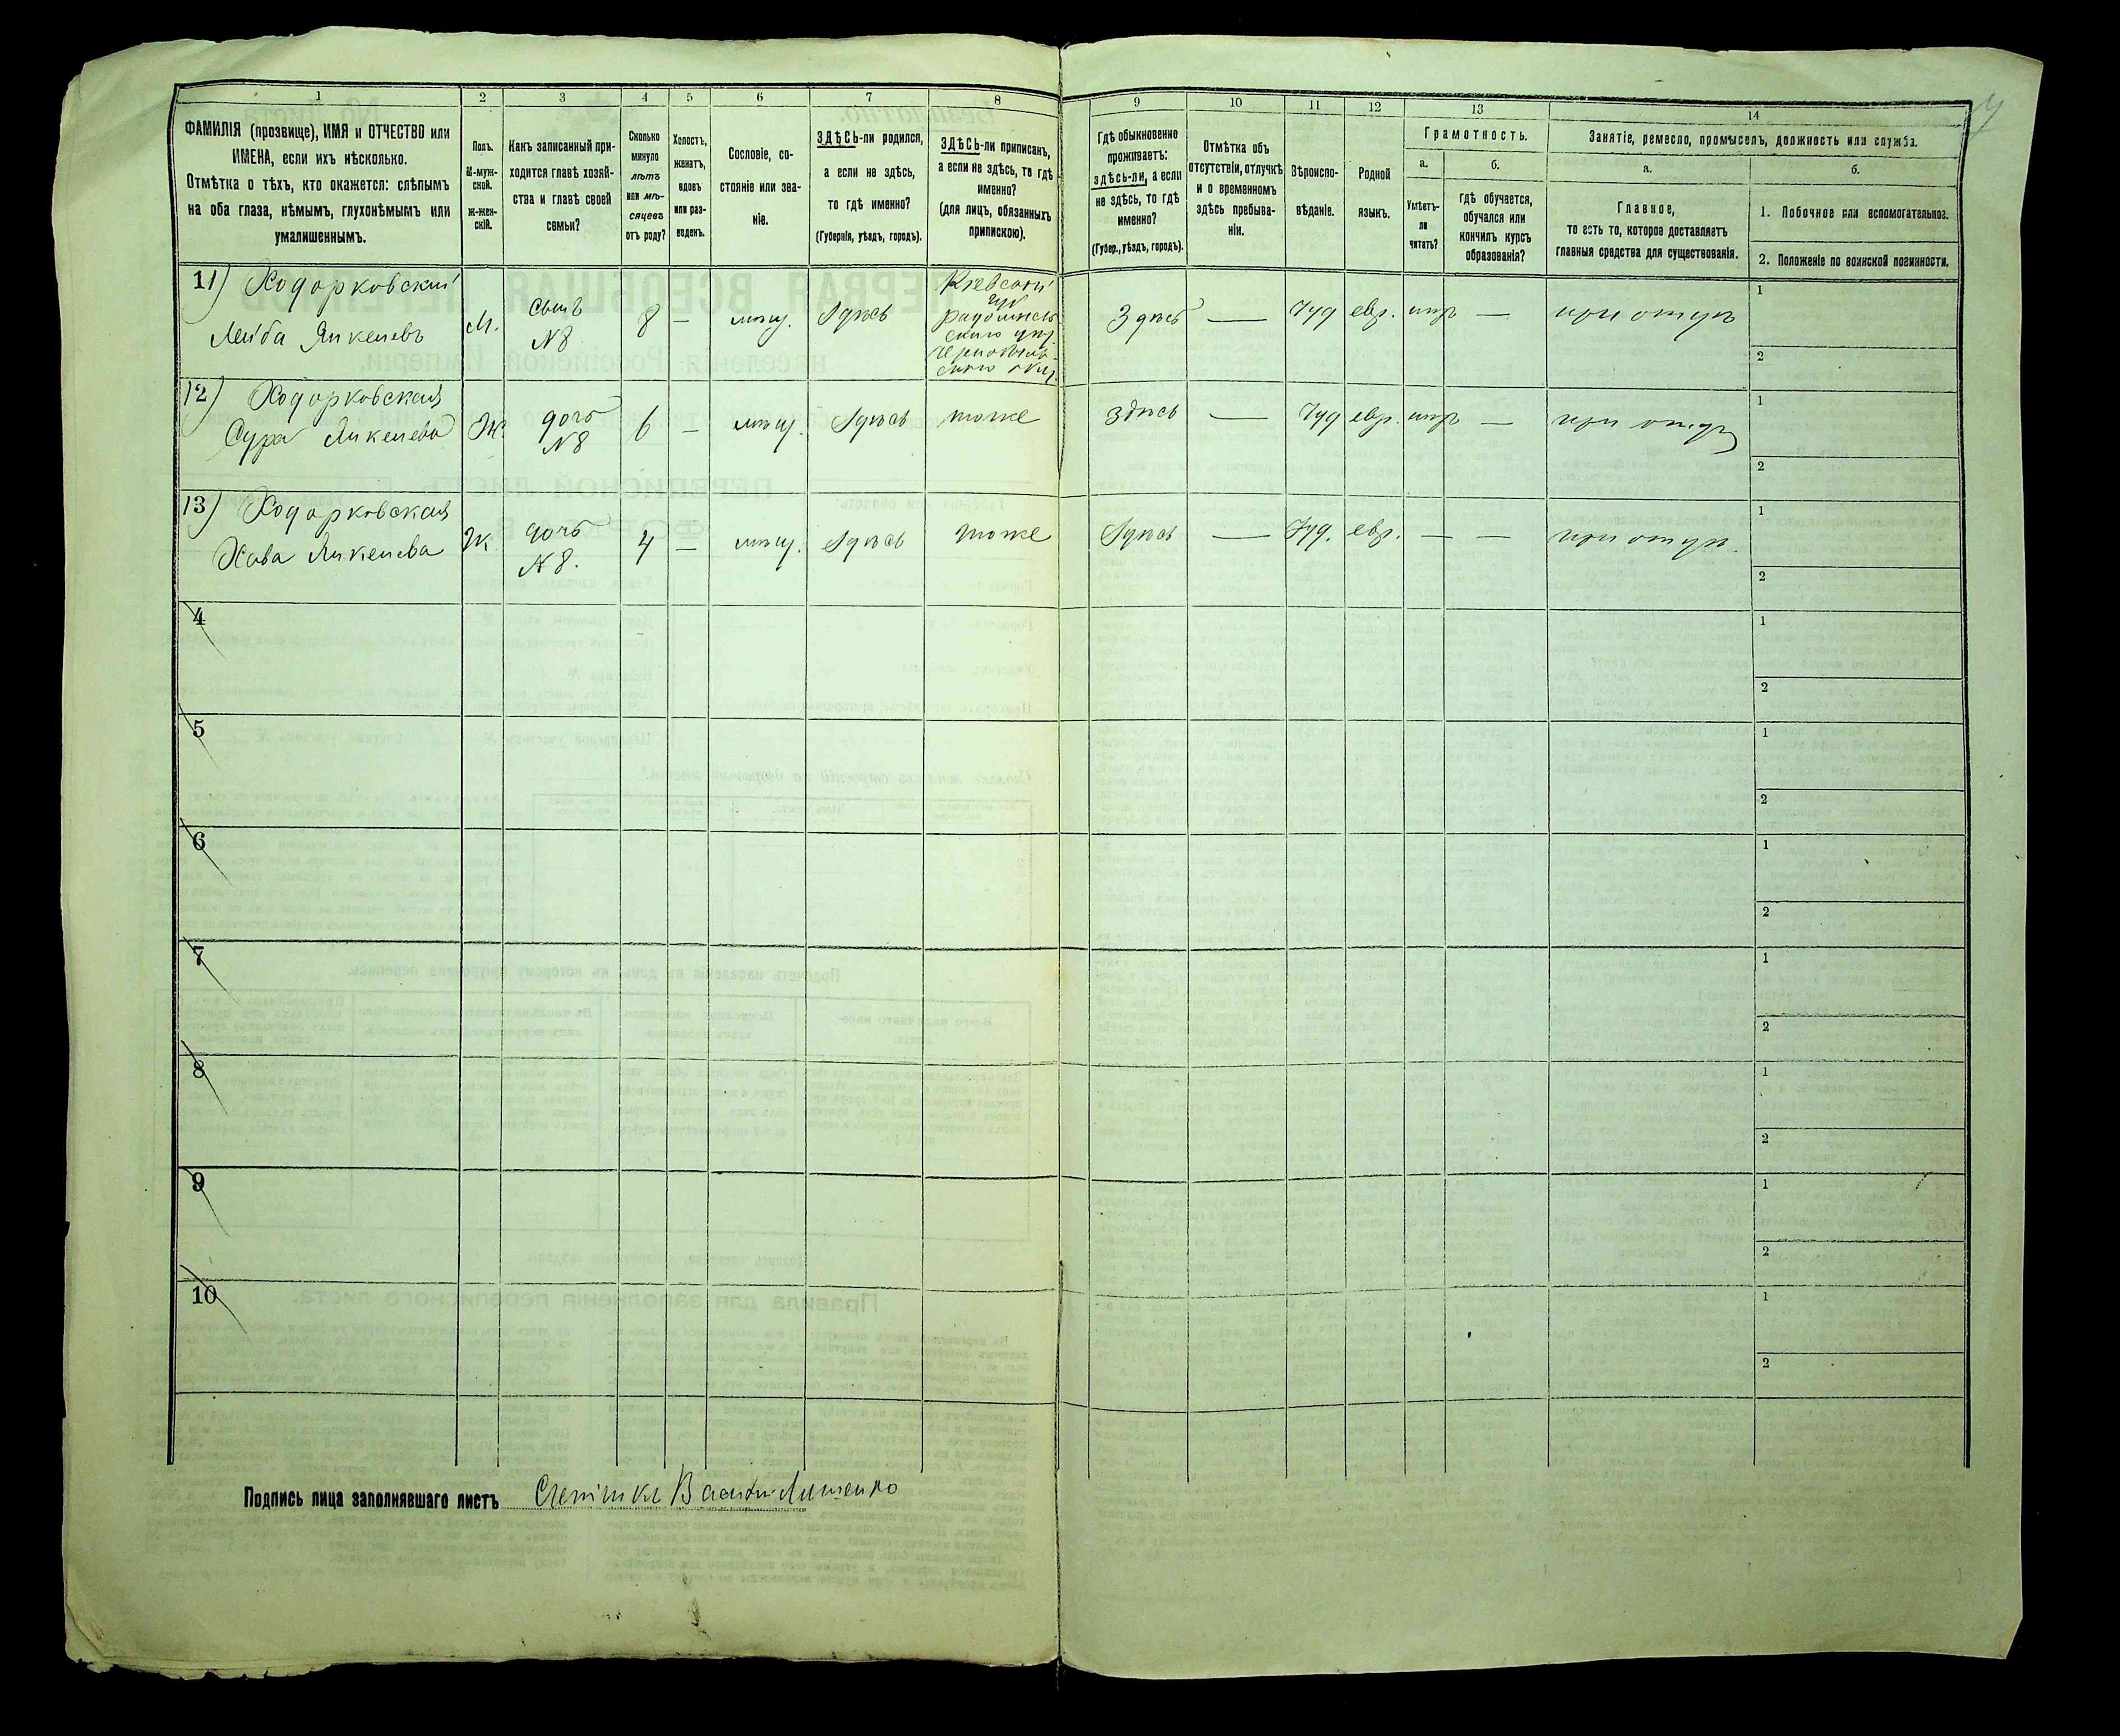 1
2
3
4
5
6
7
8
ФАМИЛІЯ (прозвище), ИМЯ и ОТЧЕСТВО или
ИМЕНА, если ихъ нѣсколько.
Отмѣтка о тѣхъ, кто окажется: слѣпымъ
на оба глаза, нѣмымъ, глухонѣмымъ или
умалишеннымъ.
Полъ.
М-муж-
ской.
Ж-жен-
скій.
Какъ записанный при-
ходится главѣ хозяй-
ства и главѣ своей
семьи?
Сколько
минуло
лѣтъ
или мѣ-
сяцевъ
отъ роду?
Холостъ,
женатъ,
вдовъ
или раз-
веденъ.
Сословіе, со-
стояніе или зва-
ніе.
ЗДѢСЬ-ли родился,
а если не здѣсь,
то гдѣ именно?
(Губернія, уѣздъ, городъ).
ЗДѢСЬ-ли приписанъ,
а если не здѣсь, то гдѣ
именно?
(для лицъ, обязанныхъ
припискою).
9
10
11
12
13
14
Гдѣ обыкновенно
проживаетъ:
здѣсь-ли, а если
не здѣсь, то гдѣ
именно?
(Губер., уѣздъ, городъ).
Отмѣтка объ
отсутствіи, отлучкѣ
и о временномъ
здѣсь пребыва-
ніи.
Вѣроиспо-
вѣданіе.
Родной
языкъ.
Грамотность.
а.
б.
Умѣетъ-
ли
читать?
гдѣ обучается,
обучался или
кончилъ курсъ
образованія?
Занятіе, ремесло, промыселъ, должность или служба.
а.
б.
Главное,
то есть то, которое доставляетъ
главныя средства для существованія.
1. Побочное или вспомогательное.
2. Положеніе по воинской повинности.
11) Ходорковскій
Лейба Янкелевъ
М.
сынъ
№8
8
—
мѣщ.
Здѣсь
Кіевской
губ
радомысль
скаго уѣз.
Здѣсь
—
Іуд
евр.
—
1
2
12) Ходорковская
Сура Янкелева
Ж.
дочь
№8
6
—
мѣщ.
Здѣсь
тоже
здѣсь
—
Іуд
евр.
—
при отцѣ
1
2
13) Ходорковская
Хава Янкелева
Ж.
дочь
№8.
4
—
мѣщ.
Здѣсь
тоже
Здѣсь
—
Іуд.
евр.
—
—
при отцѣ.
1
2
4
1
2
5
1
2
6
1
2
7
1
2
8
1
2
9
1
2
10
1
2
Подпись лица заполнявшаго листъ